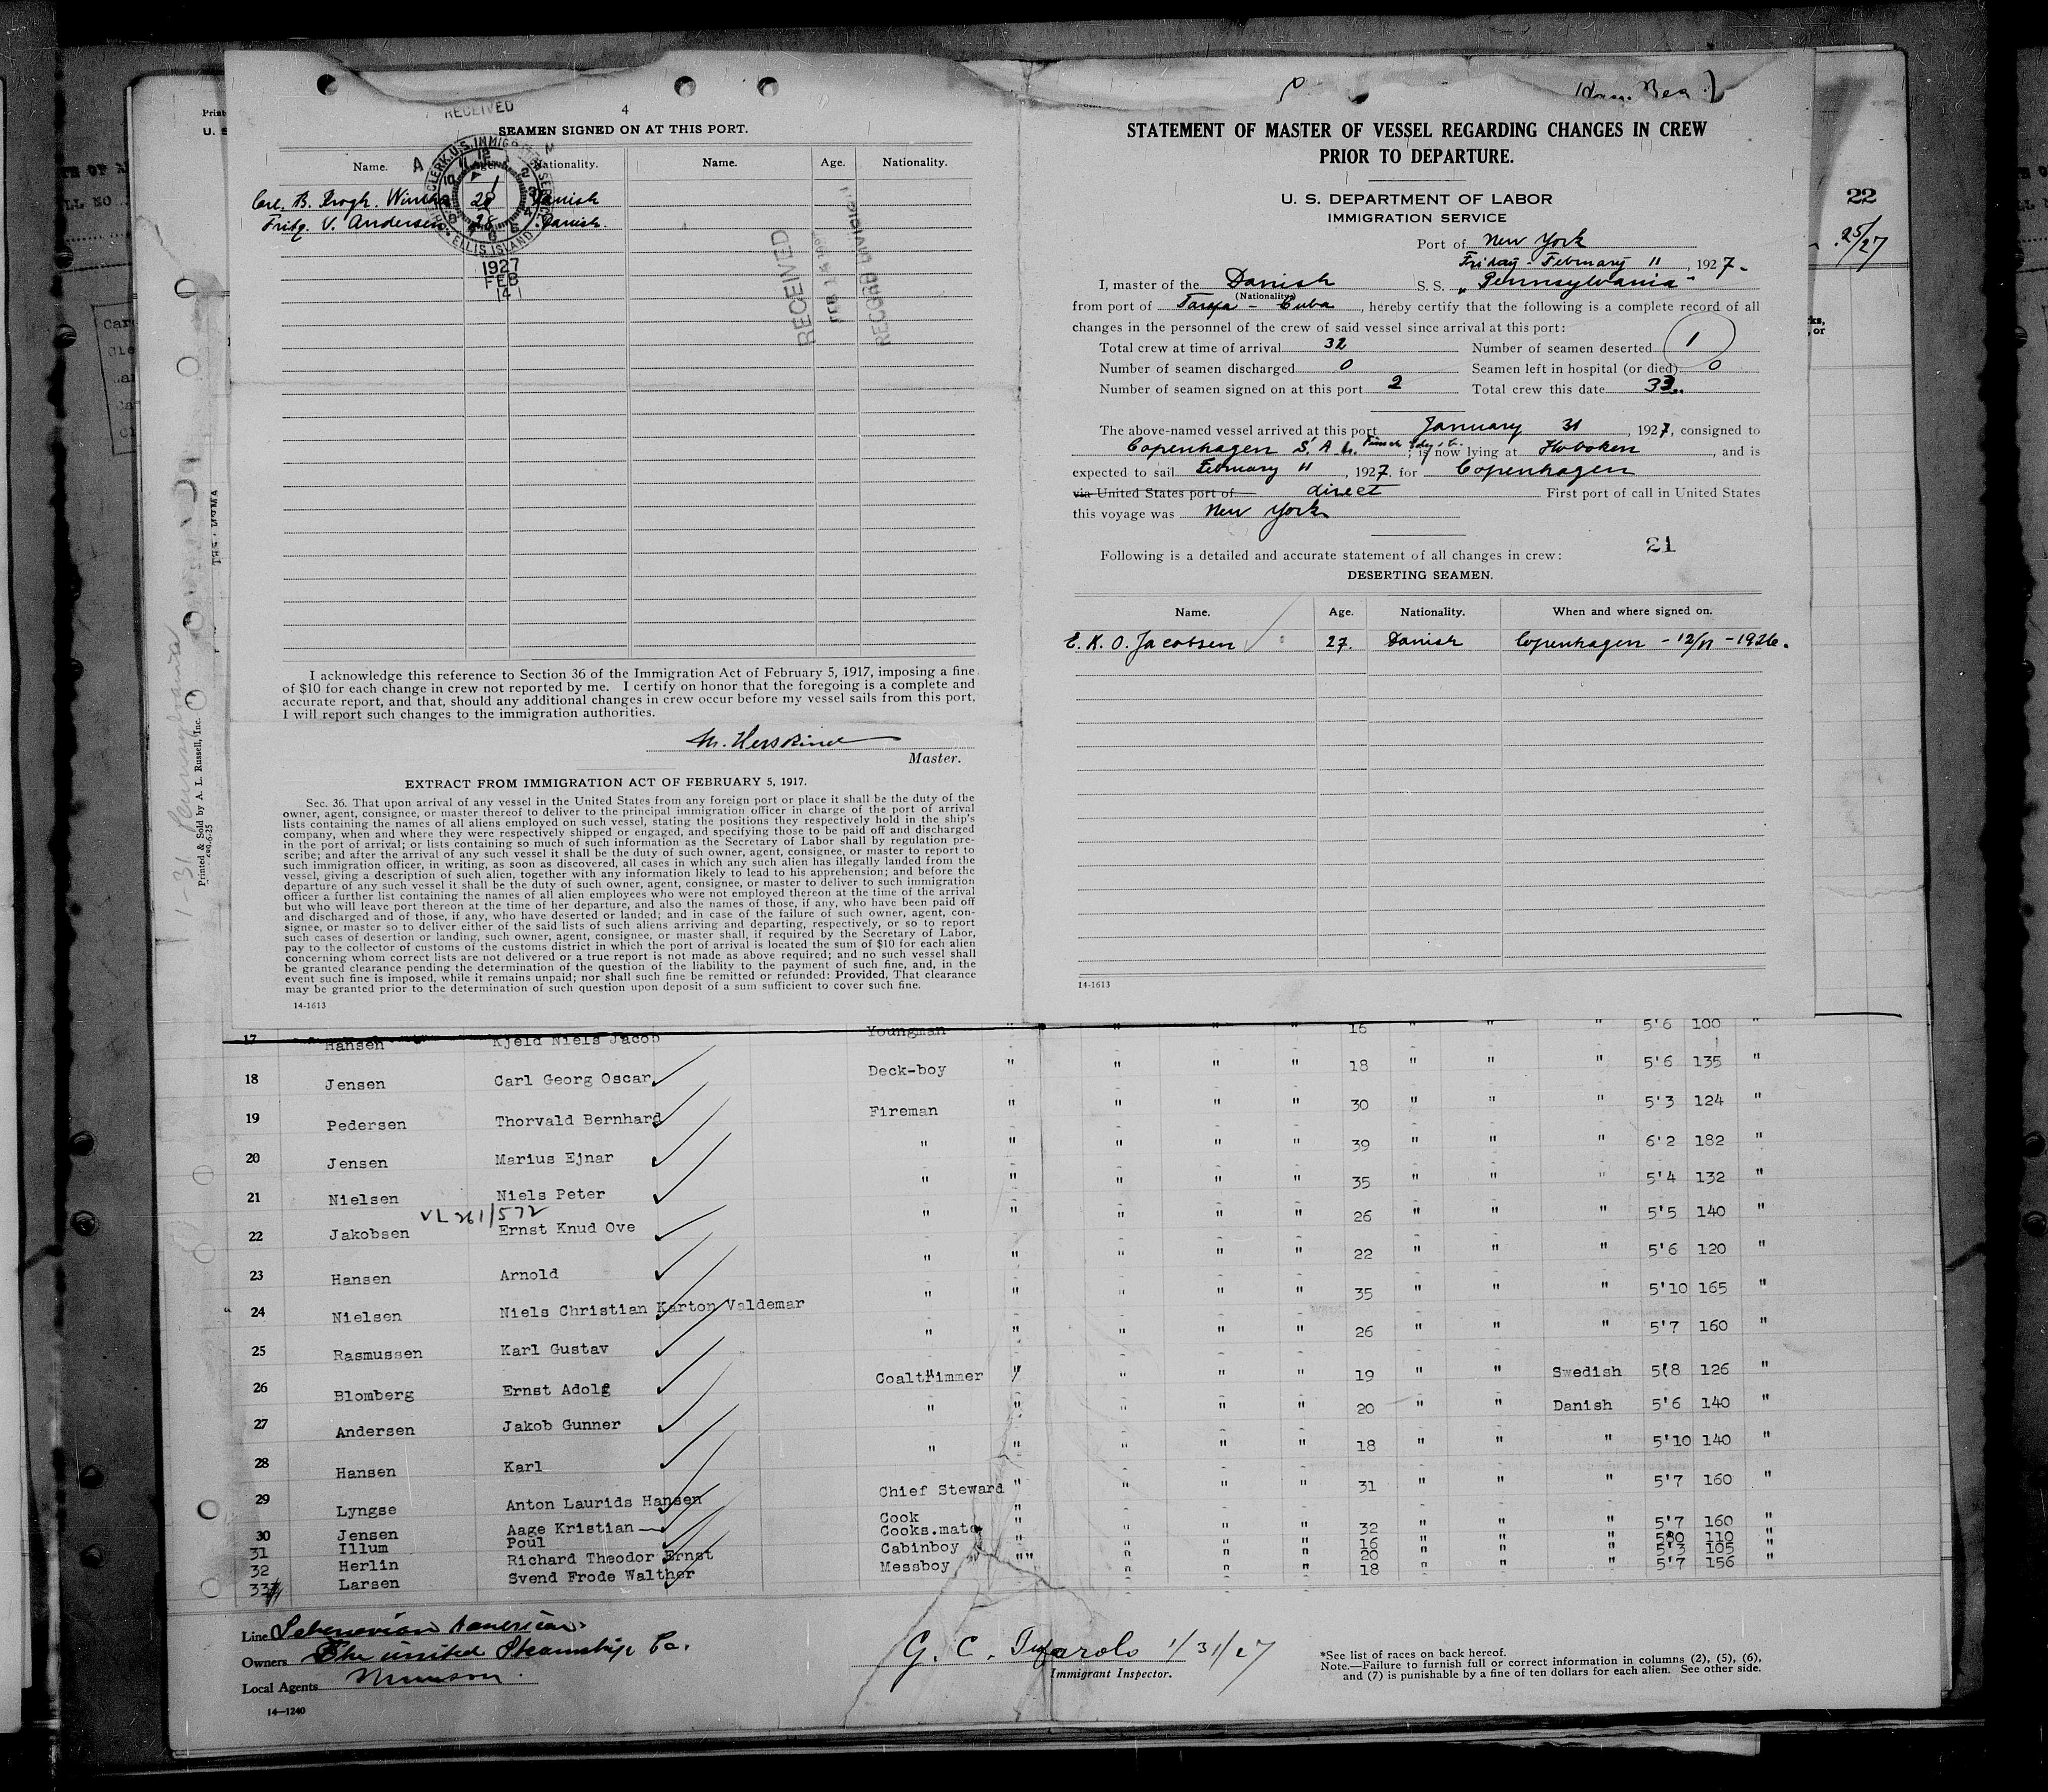 RECEIVED
4
SEAMEN SIGNED ON AT THIS PORT.
Name. Nationality. Name. Age. Nationality.
Carl. B. Krogh. 28 Danish
Fritz. V. Andersen. 28 Danish.
CLERK, U.S. IMMIGRATION SERVICE
ELLIS ISLAND
1927
FEB
14
RECEIVED
FEB 14
RECORD DIVISION
I acknowledge this reference to Section 36 of the Immigration Act of February 5, 1917, imposing a fine
of $10 for each change in crew not reported by me. I certify on honor that the foregoing is a complete and
accurate report, and that, should any additional changes in crew occur before my vessel sails from this port,
I will report such changes to the immigration authorities.
M. Herskind
Master.
EXTRACT FROM IMMIGRATION ACT OF FEBRUARY 5, 1917.
Sec. 36. That upon arrival of any vessel in the United States from any foreign port or place it shall be the duty of the
owner, agent, consignee, or master thereof to deliver to the principal immigration officer in charge of the port of arrival
lists containing the names of all aliens employed on such vessel, stating the positions they respectively hold in the ship's
company, when and where they were respectively shipped or engaged, and specifying those to be paid off and discharged
in the port of arrival; or lists containing so much of such information as the Secretary of Labor shall by regulation pre-
scribe; and after the arrival of any such vessel it shall be the duty of such owner, agent, consignee, or master to report to
such immigration officer, in writing, as soon as discovered, all cases in which any such alien has illegally landed from the
vessel, giving a description of such alien, together with any information likely to lead to his apprehension; and before the
departure of any such vessel it shall be the duty of such owner, agent, consignee, or master to deliver to such immigration
officer a further list containing the names of all alien employees who were not employed thereon at the time of the arrival
but who will leave port thereon at the time of her departure, and also the names of those, if any, who have been paid off
and discharged and of those, if any, who have deserted or landed; and in case of the failure of such owner, agent, con-
signee, or master so to deliver either of the said lists of such aliens arriving and departing, respectively, or so to report
such cases of desertion or landing, such owner, agent, consignee, or master shall, if required by the Secretary of Labor,
pay to the collector of customs of the customs district in which the port of arrival is located the sum of $10 for each alien
concerning whom correct lists are not delivered or a true report is not made as above required; and no such vessel shall
be granted clearance pending the determination of the question of the liability to the payment of such fine, and, in the
event such fine is imposed, while it remains unpaid; nor shall such fine be remitted or refunded: Provided, That clearance
may be granted prior to the determination of such question upon deposit of a sum sufficient to cover such fine.
14-1613
1-31 Pennsylvania
Printed & Sold by A. L. Russell, Inc.
STATEMENT OF MASTER OF VESSEL REGARDING CHANGES IN CREW
PRIOR TO DEPARTURE.
U. S. DEPARTMENT OF LABOR
IMMIGRATION SERVICE
22
25/27
Port of New York
Friday - February 11, 1927.
I, master of the Danish S. S. "Pennsylvania"
(Nationality)
from port of Tarafa - Cuba, hereby certify that the following is a complete record of all
changes in the personnel of the crew of said vessel since arrival at this port:
Total crew at time of arrival 32 Number of seamen deserted 1
Number of seamen discharged 0 Seamen left in hospital (or died) 0
Number of seamen signed on at this port 2 Total crew this date 33.
The above-named vessel arrived at this port January 31, 1927, consigned to
Copenhagen ; is now lying at Hoboken, and is
expected to sail February 11, 1927. for Copenhagen
via United States port of direct First port of call in United States
this voyage was New York
21
Following is a detailed and accurate statement of all changes in crew:
DESERTING SEAMEN.
Name. Age. Nationality. When and where signed on.
E. K. O. Jacobsen 27. Danish Copenhagen - 12/11 - 1926.
14-1613
17 Hansen Kjeld Niels Jacob Youngman " " " " 16 " " " 5'6 100 "
18 Jensen Carl Georg Oscar Deck-boy " " " " 18 " " " 5'6 135 "
19 Pedersen Thorvald Bernhard Fireman " " " " 30 " " " 5'3 124 "
20 Jensen Marius Ejnar " " " " " 39 " " " 6'2 182 "
21 Nielsen Niels Peter " " " " " 35 " " " 5'4 132 "
VL 261/572
22 Jakobsen Ernst Knud Ove " " " " " 26 " " " 5'5 140 "
23 Hansen Arnold " " " " " 22 " " " 5'6 120 "
24 Nielsen Niels Christian Karton Valdemar " " " " " 35 " " " 5'10 165 "
25 Rasmussen Karl Gustav " " " " " 26 " " " 5'7 160 "
26 Blomberg Ernst Adolf Coaltrimmer " " " " 19 " " Swedish 5'8 126 "
27 Andersen Jakob Gunner " " " " " 20 " " Danish 5'6 140 "
28 Hansen Karl " " " " " 18 " " " 5'10 140 "
29 Lyngse Anton Laurids Hansen Chief Steward " " " " 31 " " " 5'7 160 "
30 Jensen Aage Kristian Cook " " " " 32 " " " 5'7 160 "
31 Illum Poul Cooks.mate " " " " 16 " " " 110 "
32 Herlin Richard Theodor Ernst Cabinboy " " " " 20 " " " 5'3 105 "
33 Larsen Svend Frode Walther Messboy " " " " 18 " " " 5'7 156 "
Line American
Owners The United Steamship Co.
Local Agents Munson
14—1240
G. C. 1/31/27
Immigrant Inspector.
*See list of races on back hereof.
Note.—Failure to furnish full or correct information in columns (2), (5), (6),
and (7) is punishable by a fine of ten dollars for each alien. See other side.